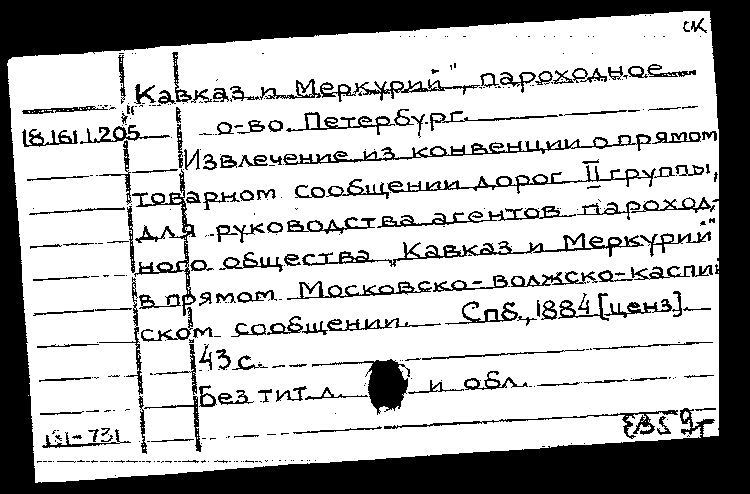 СК
"Кавказ и Меркурий", пароходное
18.161.1.205 о-во. Петербург.
Извлечение из конвенции о прямом
товарном сообщении дорог II группы,
для руководства агентов пароход-
ного общества "Кавказ и Меркурий"
в прямом Московско-волжско-каспий
ском сообщении. Спб., 1884 [ценз].
43 с.
Без тит. л. и обл.
131-731